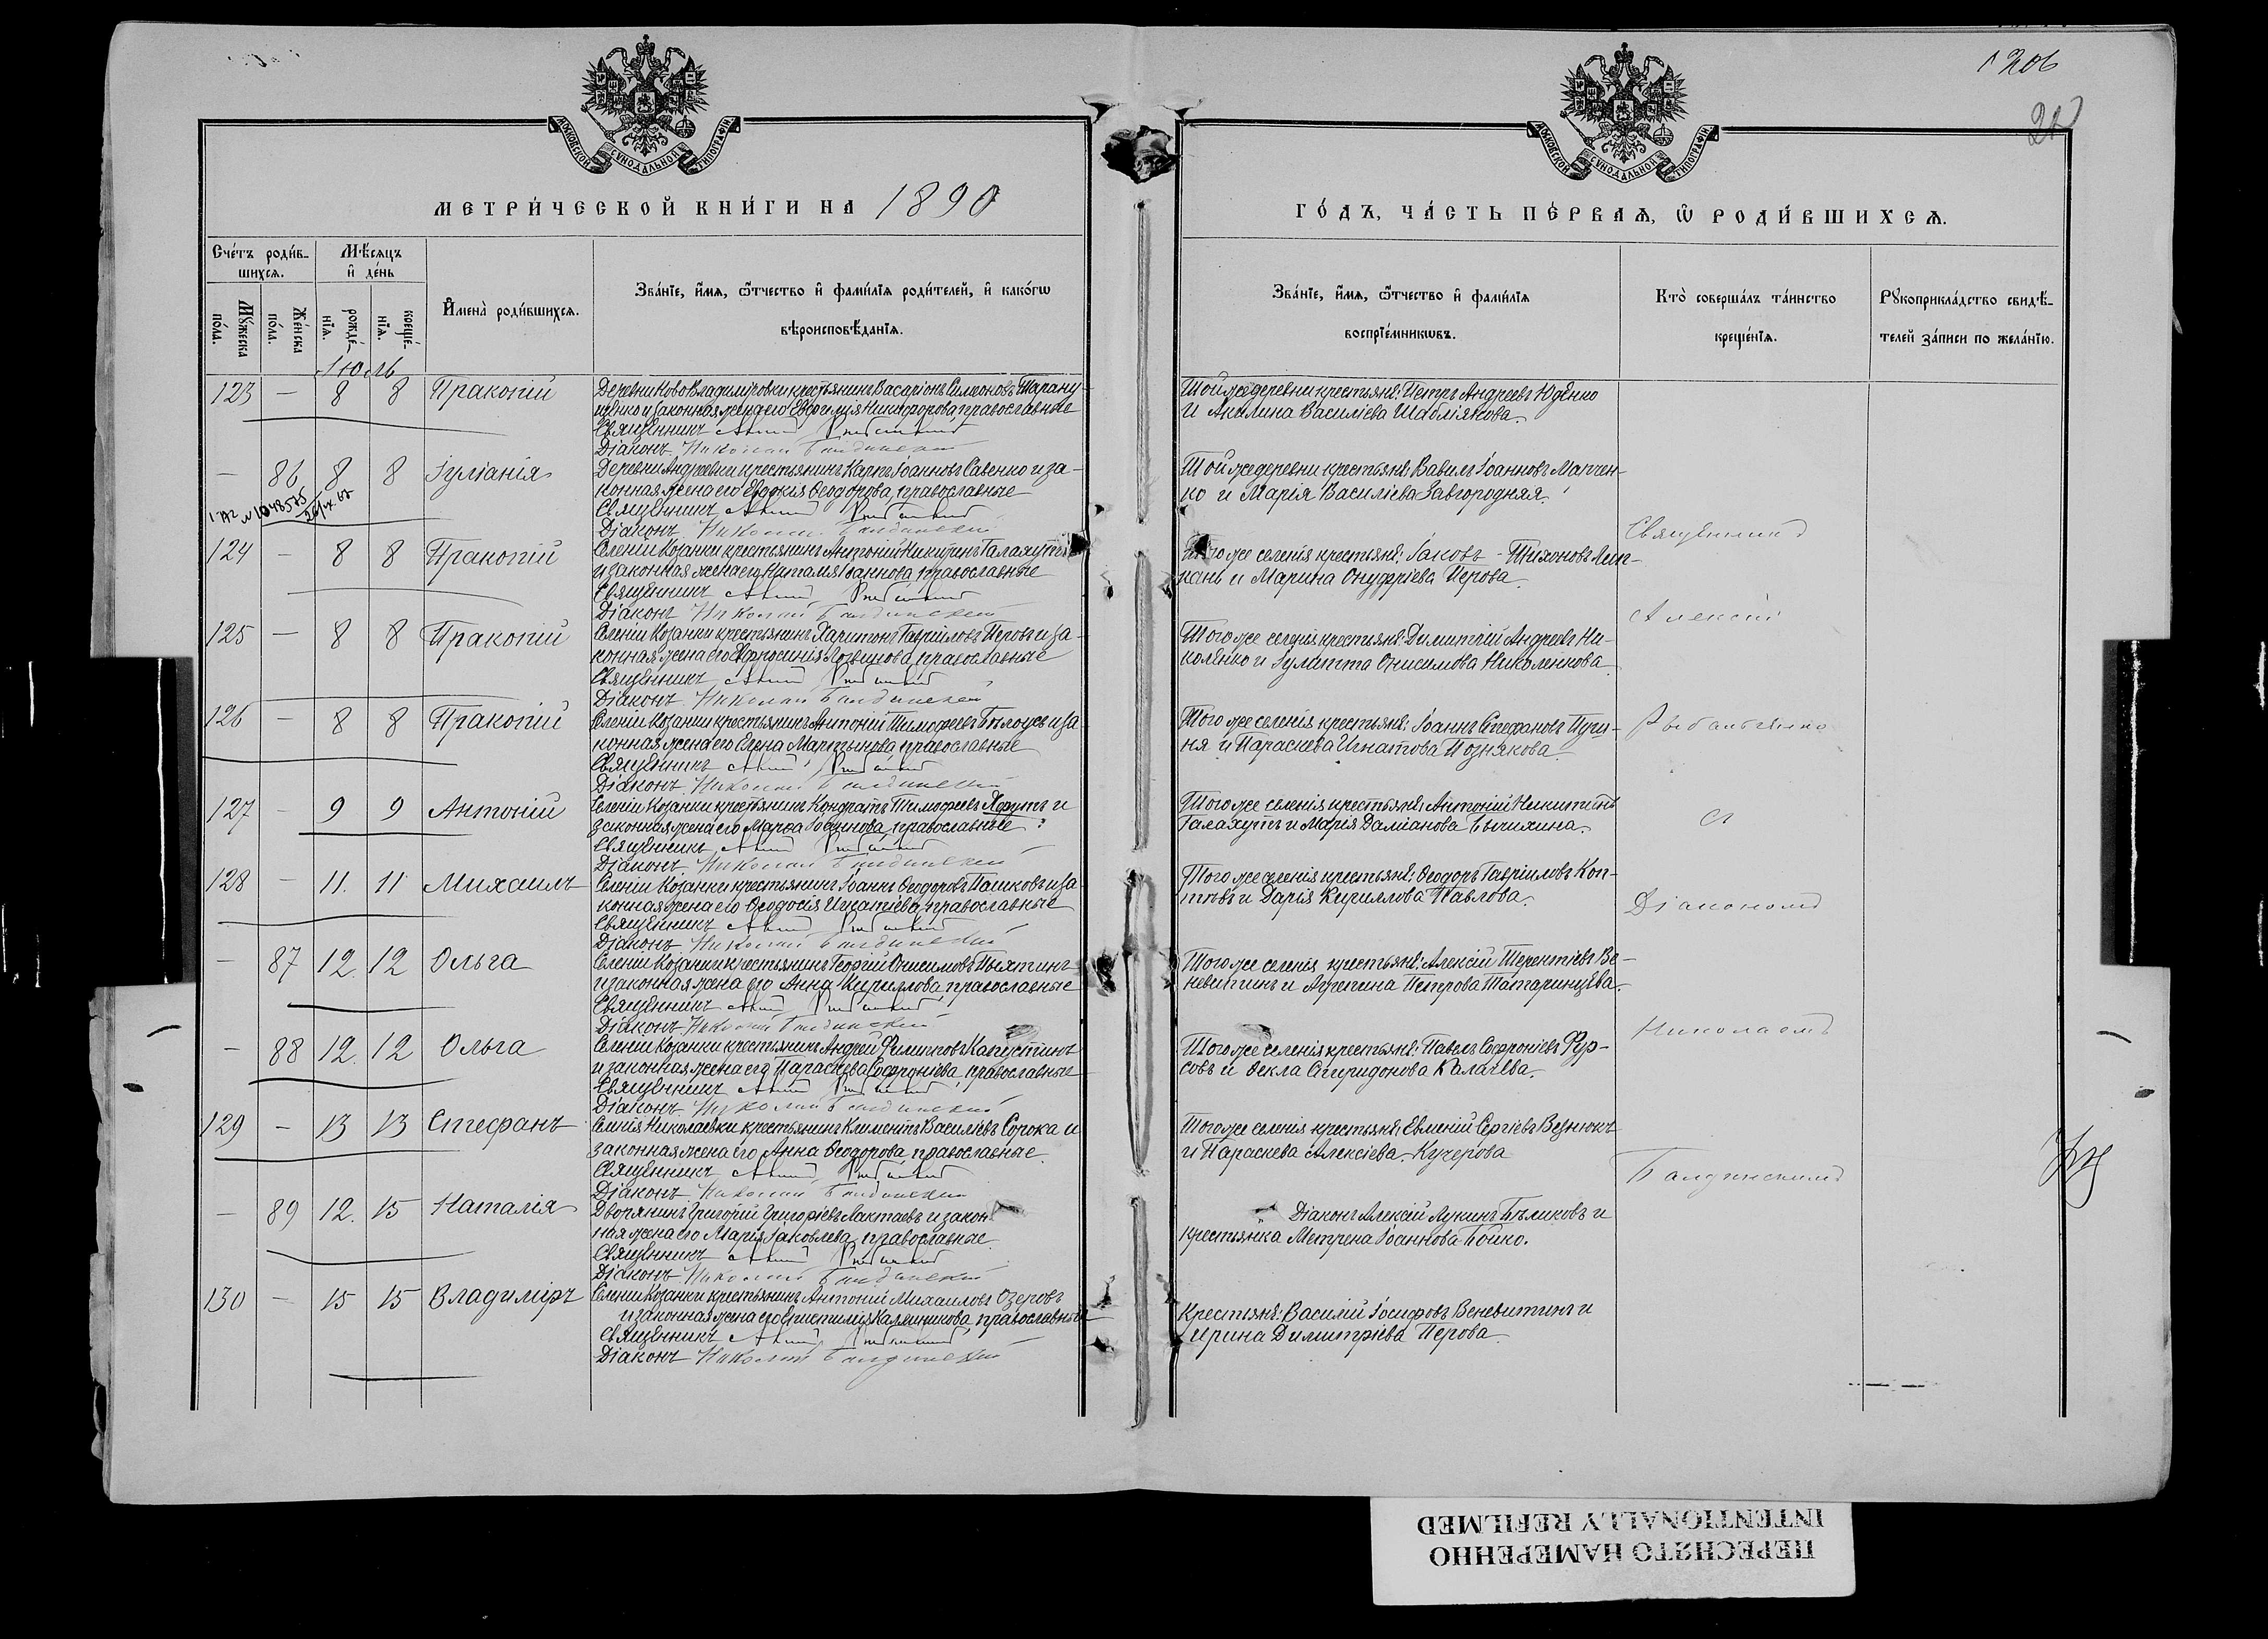 1206
МОСКОВСКОЙ СѴНОДАЛЬНОЙ ТИПОГРАФІИ
МОСКОВСКОЙ СѴНОДАЛЬНОЙ ТИПОГРАФІИ
МЕТРИ́ЧЕСКОЙ КНИ́ГИ НА 1890
ГО́ДЪ, ЧА́СТЬ ПЕ́РВАѦ, Ѿ РОДИ́ВШИХСѦ.
Сче́тъ роди́в-
шихсѧ.
Мꙋжеска
по́ла.
Же́нска
по́ла.
Мѣ́сѧцъ
и҆ де́нь
рожде́-
нїѧ.
креще́-
нїѧ.
И҆мена̀ роди́вшихсѧ.
Зва́нїе, и҆́мѧ, ѻ҆́тчество и҆ фами́лїѧ роди́телей, и҆ како́гѡ
вѣроисповѣ́данїѧ.
Зва́нїе, и҆́мѧ, ѻ҆́тчество и҆ фами́лїѧ
воспрїе́мникѡвъ.
Кто̀ соверша́лъ та́инство
креще́нїѧ.
Рꙋкоприкла́дство свидѣ́-
телей за́писи по жела́нїю.
Іюль
123 — 8 8 Пракопій
Деревни Ново Владиміровки крестьянинъ Васаріонъ Симеоновъ Тарану-
щенко и законная жена его Евфимія Никифорова, православные
Священникъ
Діаконъ Николай Балдинский
Той же деревни крестьяне: Петръ Андреевъ Юденко
и Акилина Василіева Шаблiякова.
— 86 8 8 Іуліанія
Деревни Андреевки крестьянинъ Карпъ Іоанновъ Савенко и за-
конная жена его Евдокія Ѳеодорова, православные
Священникъ
Діаконъ Николай Балдинский
Той же деревни крестьяне: Вавилъ Іоанновъ Матчен-
ко и Марія Василіева Завгородняя.
124 — 8 8 Пракопій
Селеніи Козанки крестьянинъ Антоній Никитинъ Галахутъ
и законная жена его Наталія Іоаннова, православные
Священникъ
Діаконъ Николай Балдинский
Того же селенія крестьяне: Іаковъ Тихоновъ Лип-
кань и Марина Онуфріева Перова.
125 — 8 8 Пракопій
Селеніи Козанки крестьянинъ Харитонъ Гавриловъ Перовъ и за-
конная жена его Евфросинія Логвинова, православные
Священникъ
Діаконъ Николай Балдинский
Того же селенія крестьяне: Димитрій Андреевъ Ни-
коленко и Іулитта Онисимова Николенкова
126 — 8 8 Пракопій
Селеніи Козанки крестьянинъ Антоній Тимофеевъ Белоусъ и за-
конная жена его Елена Мартынова православные
Священникъ
Діаконъ Николай Балдинский
Того же селенія крестьяне: Іоаннъ Стефановъ Пучи-
ня и Параскева Игнатова Познякова.
127 — 9 9 Антоній
Селеніи Козанки крестьянинъ Кондратъ Тимофеевъ и
законная жена его Марѳа Іоаннова, православные
Священникъ
Діаконъ Николай Балдинский
Того же селенія крестьяне: Антоній Никитинъ
Галахутъ и Марія Даміанова Бычихина.
128 — 11. 11 Михаилъ
Селеніи Козанки крестьянинъ Іоаннъ Ѳеодоровъ Пашковъ и за-
конная жена его Ѳеодосія Игнатіева, православные
Священникъ
Діаконъ Николай Балдинский
Того же селенія крестьяне: Ѳеодоръ Гавріиловъ Коп-
тевъ и Дарія Кириллова Павлова.
— 87 12. 12 Ольга
Селеніи Козанки крестьянинъ Георгій Онисимовъ Пыхтинъ
и законная жена его Анна Кириллова, православные
Священникъ
Діаконъ Николай Балдинский
Того же селенія крестьяне: Алексій Терентіевъ Ве-
невитинъ и Агрепина Петрова Татаринцева.
— 88 12. 12 Ольга
Селеніи Козанки крестьянинъ Андрей Филиповъ Капустинъ
и законная жена его Параскева Софроніева, православные
Священникъ
Діаконъ Николай Балдинский
Того же селенія крестьяне: Павелъ Софроніевъ Фур-
совъ и Ѳекла Спиридонова Калачева.
129 — 13 13 Стефанъ
Селенія Николаевки крестьянинъ Климентъ Василіевъ Сорока и
законная жена его Анна Ѳеодорова, православные.
Священникъ
Діаконъ Николай Балдинский
Того же селенія крестьяне: Евменій Сергіевъ Везнюкъ
и Параскева Алексіева Кучерова
— 89 12. 15 Наталія
Дворянинъ Григорій Григоріевъ Лактаевъ и закон
ная жена его Марія Іаковлева, православные.
Священникъ
Діаконъ Николай Балдинский
Діаконъ Алексій Лукинъ Беликовъ и
крестьянка Метрена Іоаннова Бойко.
130 — 15 15 Владиміръ
Селеніи Козанки крестьянинъ Антоній Михаиловъ Озеровъ
и законная жена его Епистимія Калинникова, православные
Священникъ
Діаконъ Николай Балдинский
Крестьяне: Василій Іосифовъ Веневитинъ и
Ирина Димитріева Перова.
Священникъ
Алексій
Рыбальченко
съ
Діакономъ
Николаемъ
Балдинскимъ
ПЕРЕСНЯТО НАМЕРЕННО
INTENTIONALLY REFILMED